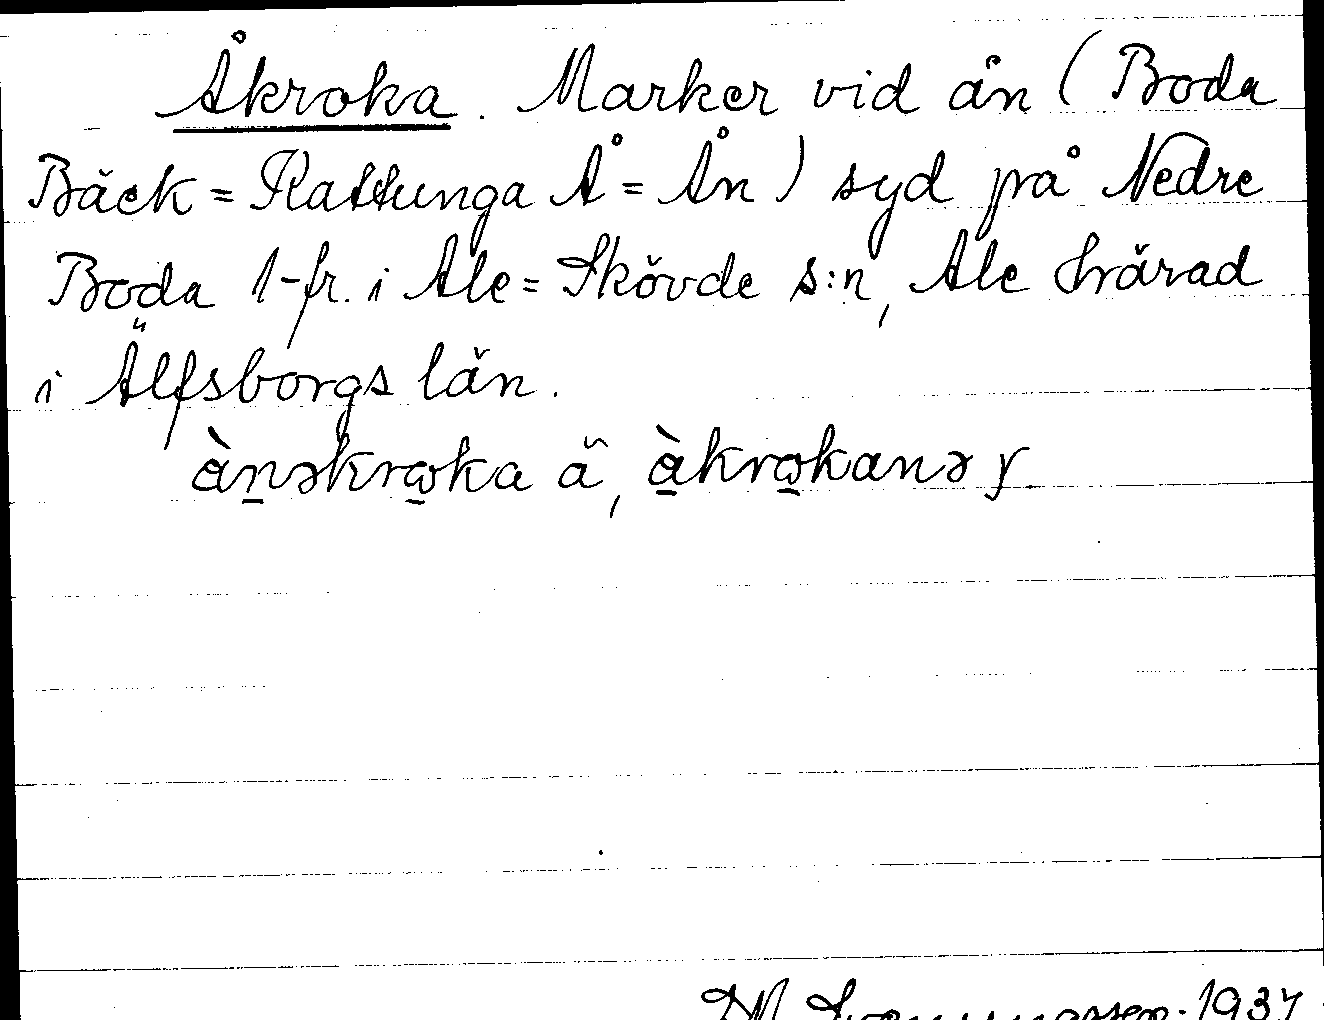 Åkroka. Marker vid ån (Boda
Bäck = Rattunga Å = Ån) syd på Nedre
Boda 1-fr. i Ale = Skövde s:n, Ale härad
i Älfsborgs län.
ànəkroka ä, àkrokanə y
1937